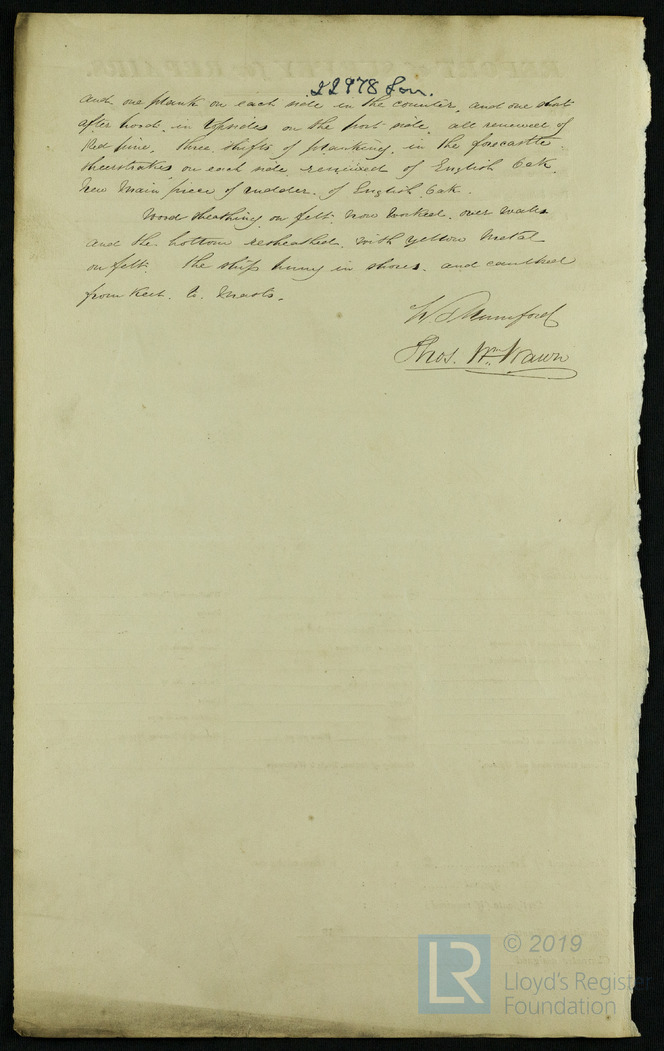 22978 Lon.
and one plank on each side in the counter, and one short
after hood in Topsides on the port side all renewed of
Red pine, three shifts of planking in the forecastle
sheerstrakes on each side renewed of English Oak.
New Main piece of rudder of English Oak.
Wood sheathing on felt now worked over wales
and the bottom resheathed with yellow Metal
on felt. The ship hung in shores and caulked
from Keel to Gunwales.
W S Mumford
Thos. Wm Wawn
© 2019
LR
Lloyd's Register
Foundation